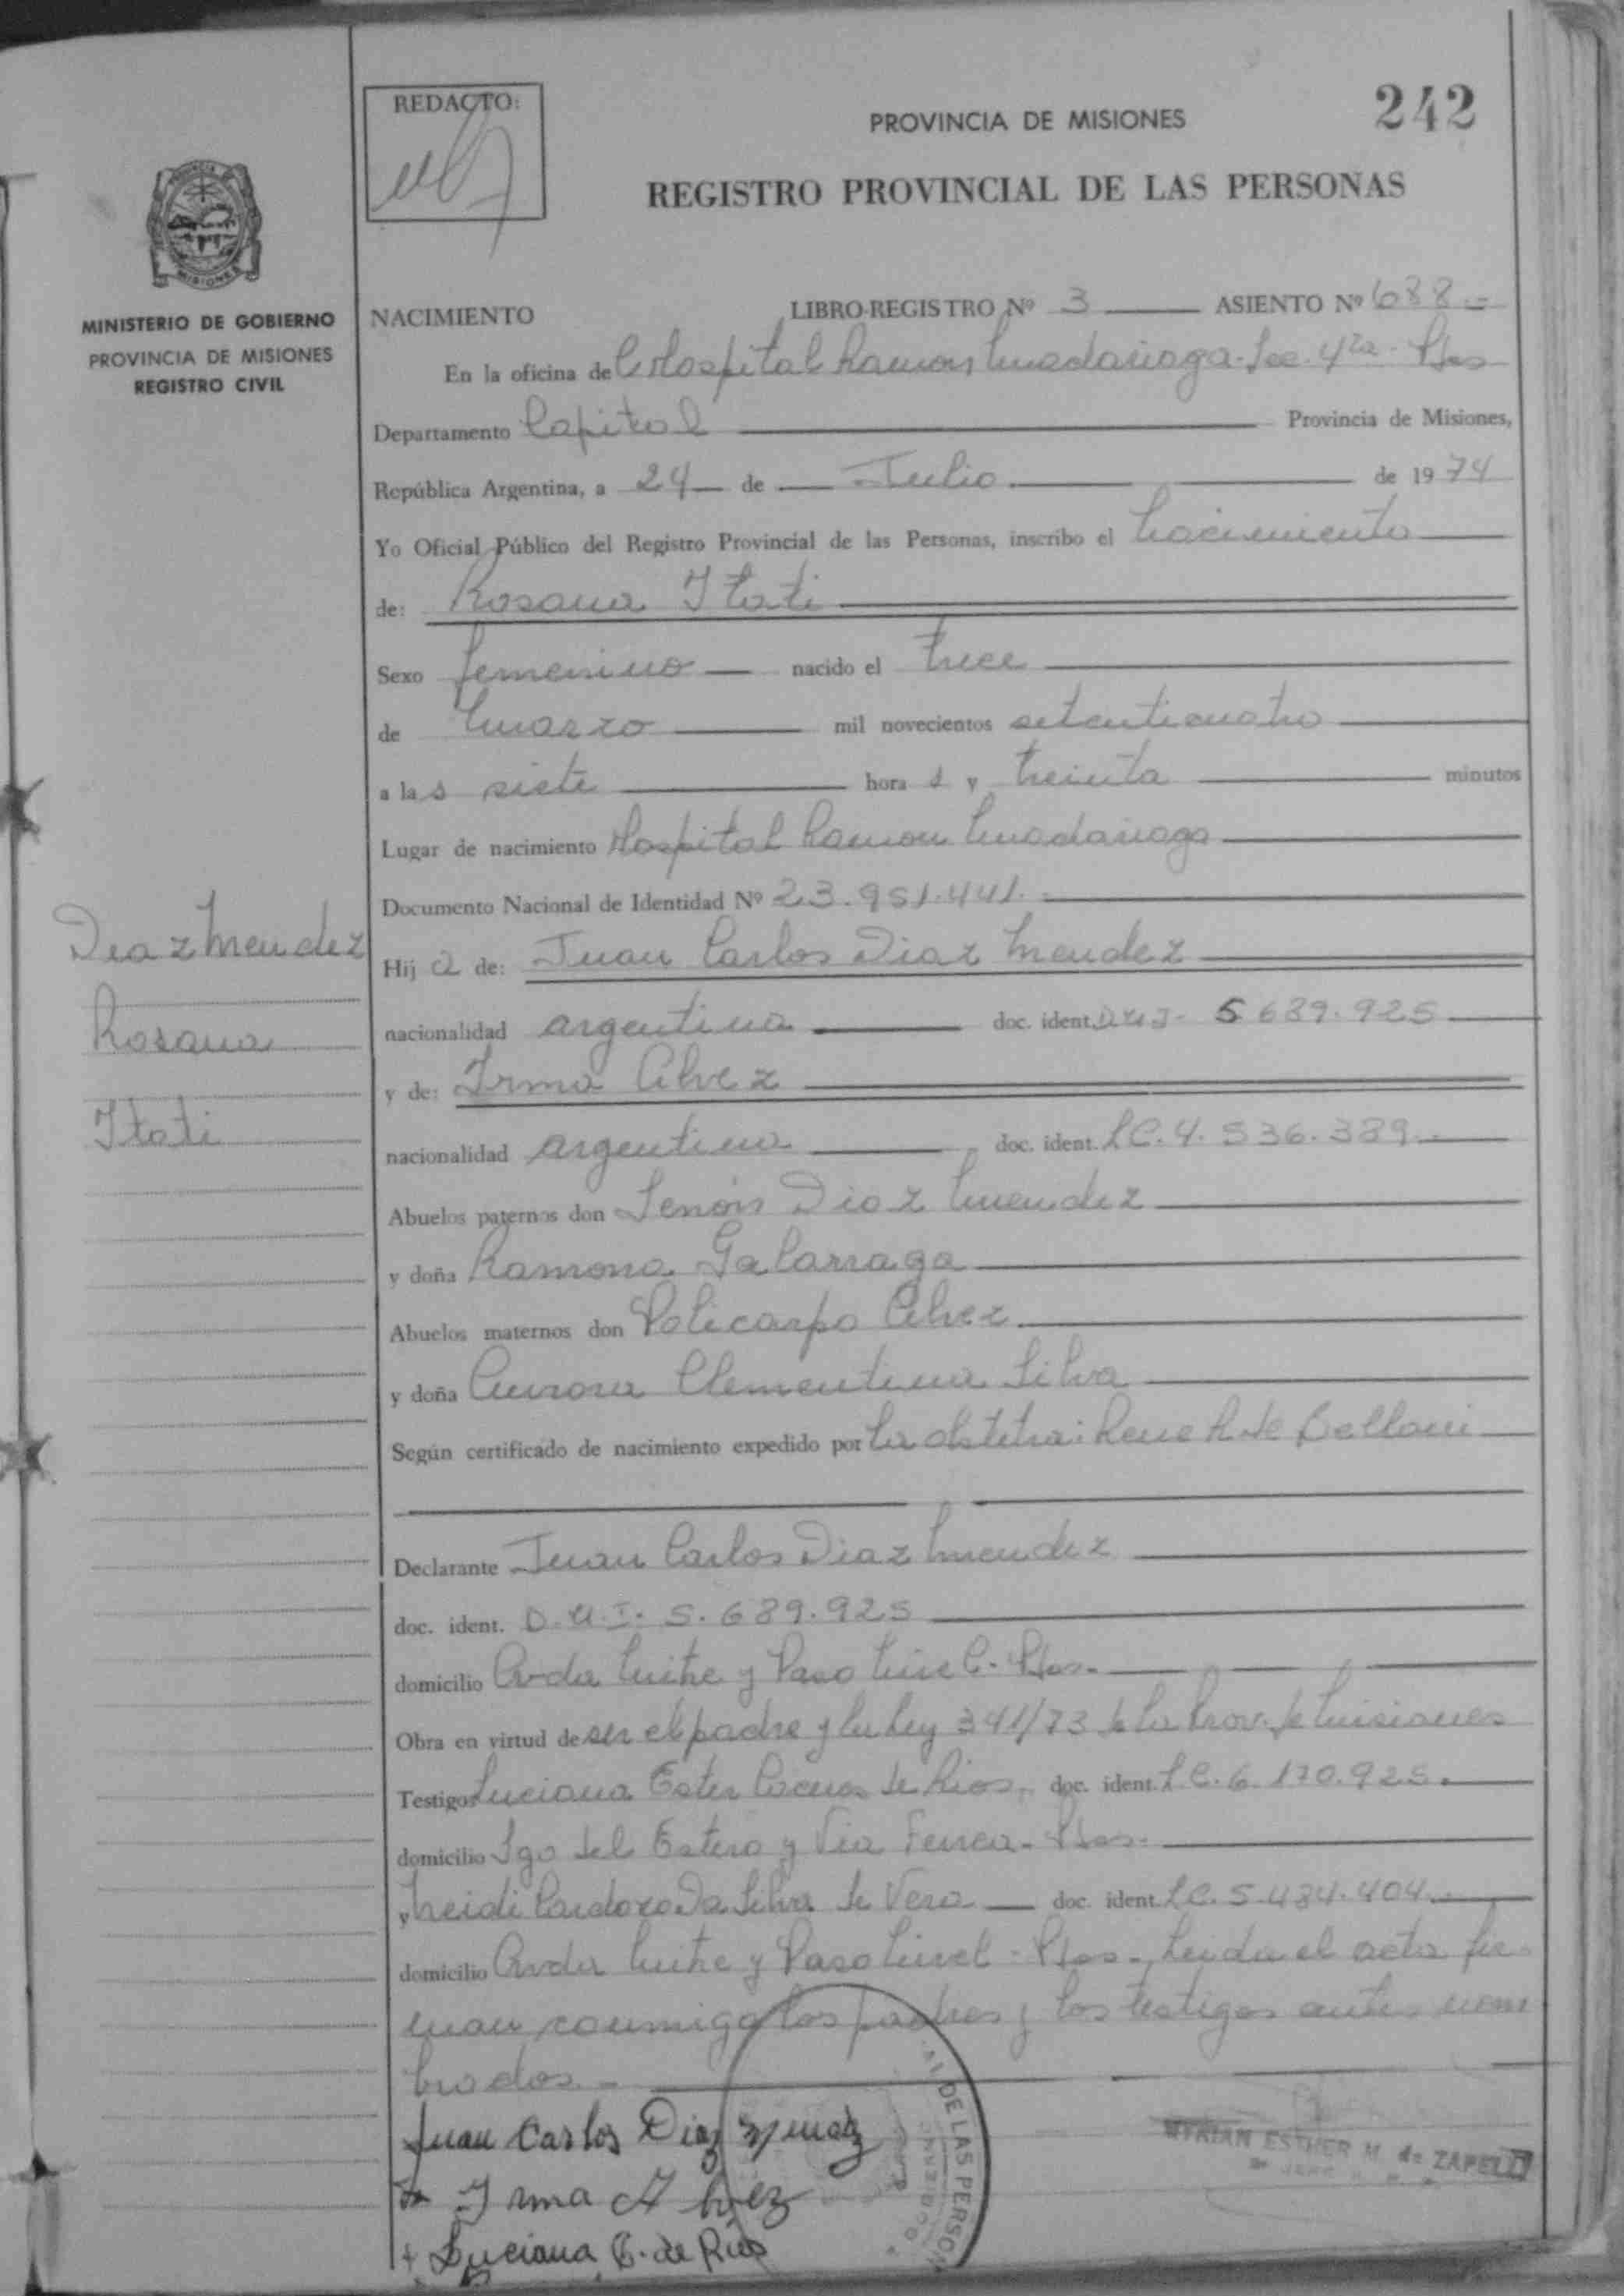 REDACTO:
242
PROVINCIA DE MISIONES
REGISTRO PROVINCIAL DE LAS PERSONAS
PROVINCIA DE
MISIONES
MINISTERIO DE GOBIERNO
PROVINCIA DE MISIONES
REGISTRO CIVIL
NACIMIENTO LIBRO-REGISTRO Nº 3 ASIENTO Nº 688
En la oficina de Hospital Ramon Madariaga. Sec. 4ta. Pdas
Departamento Capital Provincia de Misiones,
República Argentina, a 24 de Julio de 1974
Yo Oficial Público del Registro Provincial de las Personas, inscribo el Nacimiento
de: Rosana Itati
Sexo femenino nacido el trece
de Marzo mil novecientos setenticuatro
a las siete horas y treinta minutos
Lugar de nacimiento Hospital Ramon Madariaga
Documento Nacional de Identidad Nº 23.951.441.
Diaz Mendez
Rosana
Itati
Hija de: Juan Carlos Diaz Mendez
nacionalidad argentina doc. ident. D.N.I. 5.689.925
y de: Irma Alvez
nacionalidad argentina doc. ident. L.C. 4.536.389.
Abuelos paternos don Senón Diaz Mendez
y doña Ramona Galarraga
Abuelos maternos don Policarpo Alvez
y doña Aurora Clementina Silva
Según certificado de nacimiento expedido por la obstetra: Rene R. de Bellani
Declarante Juan Carlos Diaz Mendez
doc. ident. D.N.I. 5.689.925
domicilio Avda Mitre y Paso Nivel. Pdas.
Obra en virtud de ser el padre y la ley 341/73 de la Prov. de Misiones
Testigos Luciana Ester de Rios doc. ident. L.C. 6.170.925.
domicilio Sgo del Estero y Via Ferrea. Pdas.
y Neidi Cardozo Da Silva de Vera doc. ident. L.C. 5.484.404
domicilio Avda Mitre y Paso Nivel. Pdas. Leida el acta fir
man conmigo los padres y los testigos antes nom
brados.
DE LAS PERSON
MYRIAN ESTHER M. de ZAPELLI
Juan Carlos Diaz Mendez
Irma Alvez
Luciana E. de Rios